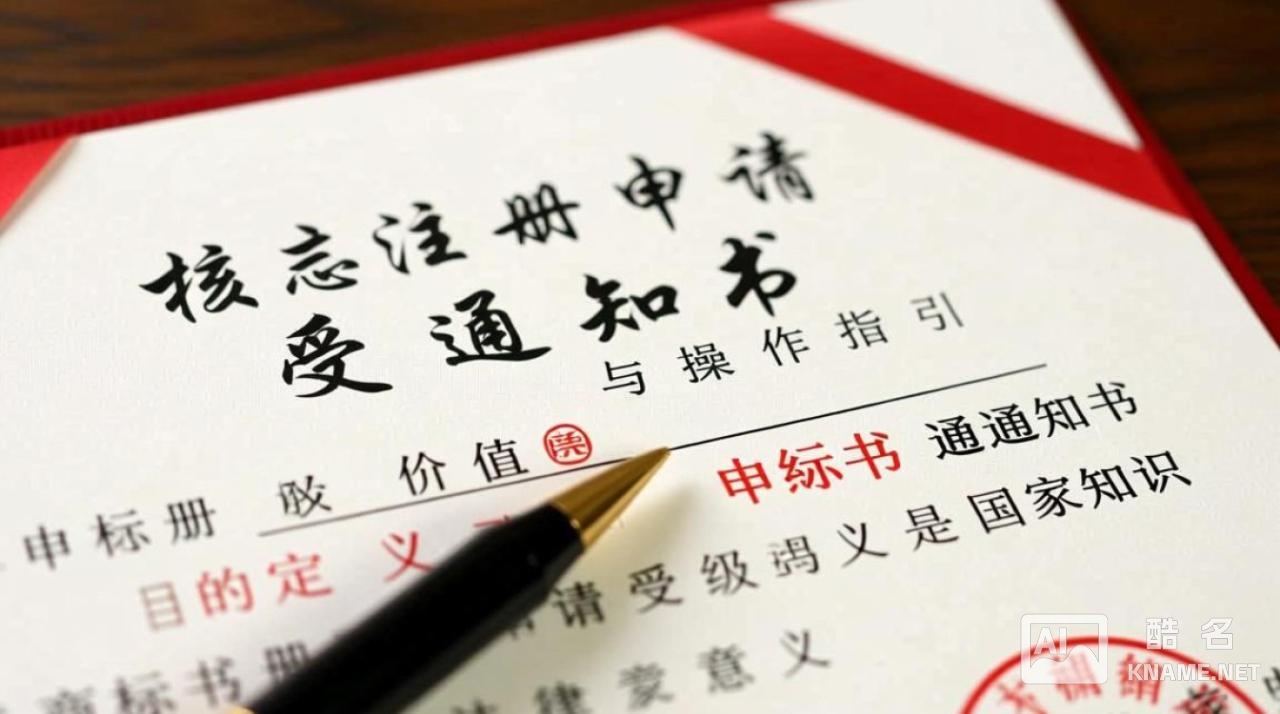 核忘注册申请
受通知书
与操作指引
申标册 价值
申标书 通通知书
目的定义
请受级 义是国家知识
商标书册
法律 意义
AI 酷名
KNAME.NET